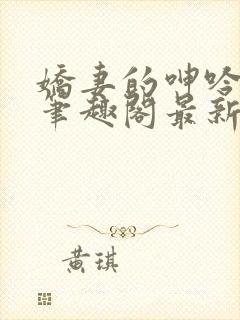 娇妻的呻吟
笔趣阁最新
黄琪